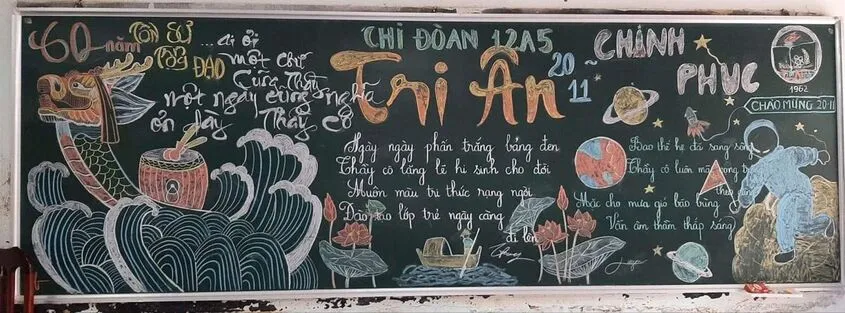 60 năm
TÔN SƯ
TRỌNG ĐẠO
...ai ơi
một chữ
cũng Thầy
một ngày cũng nghĩa
ơn dạy Thầy Cô
CHI ĐOÀN 12A5
Tri Ân
20
11
CHINH
PHỤC
1962
CHÀO MỪNG 20-11
Ngày ngày phấn trắng bảng đen
Thầy cô lặng lẽ hi sinh cho đời
Muôn màu tri thức rạng ngời
Đào tạo lớp trẻ ngày càng
đi lên
Bao thế hệ đã sang sông
Thầy cô luôn mãi
Mặc cho mưa gió bão bùng
Vẫn âm thầm thắp sáng